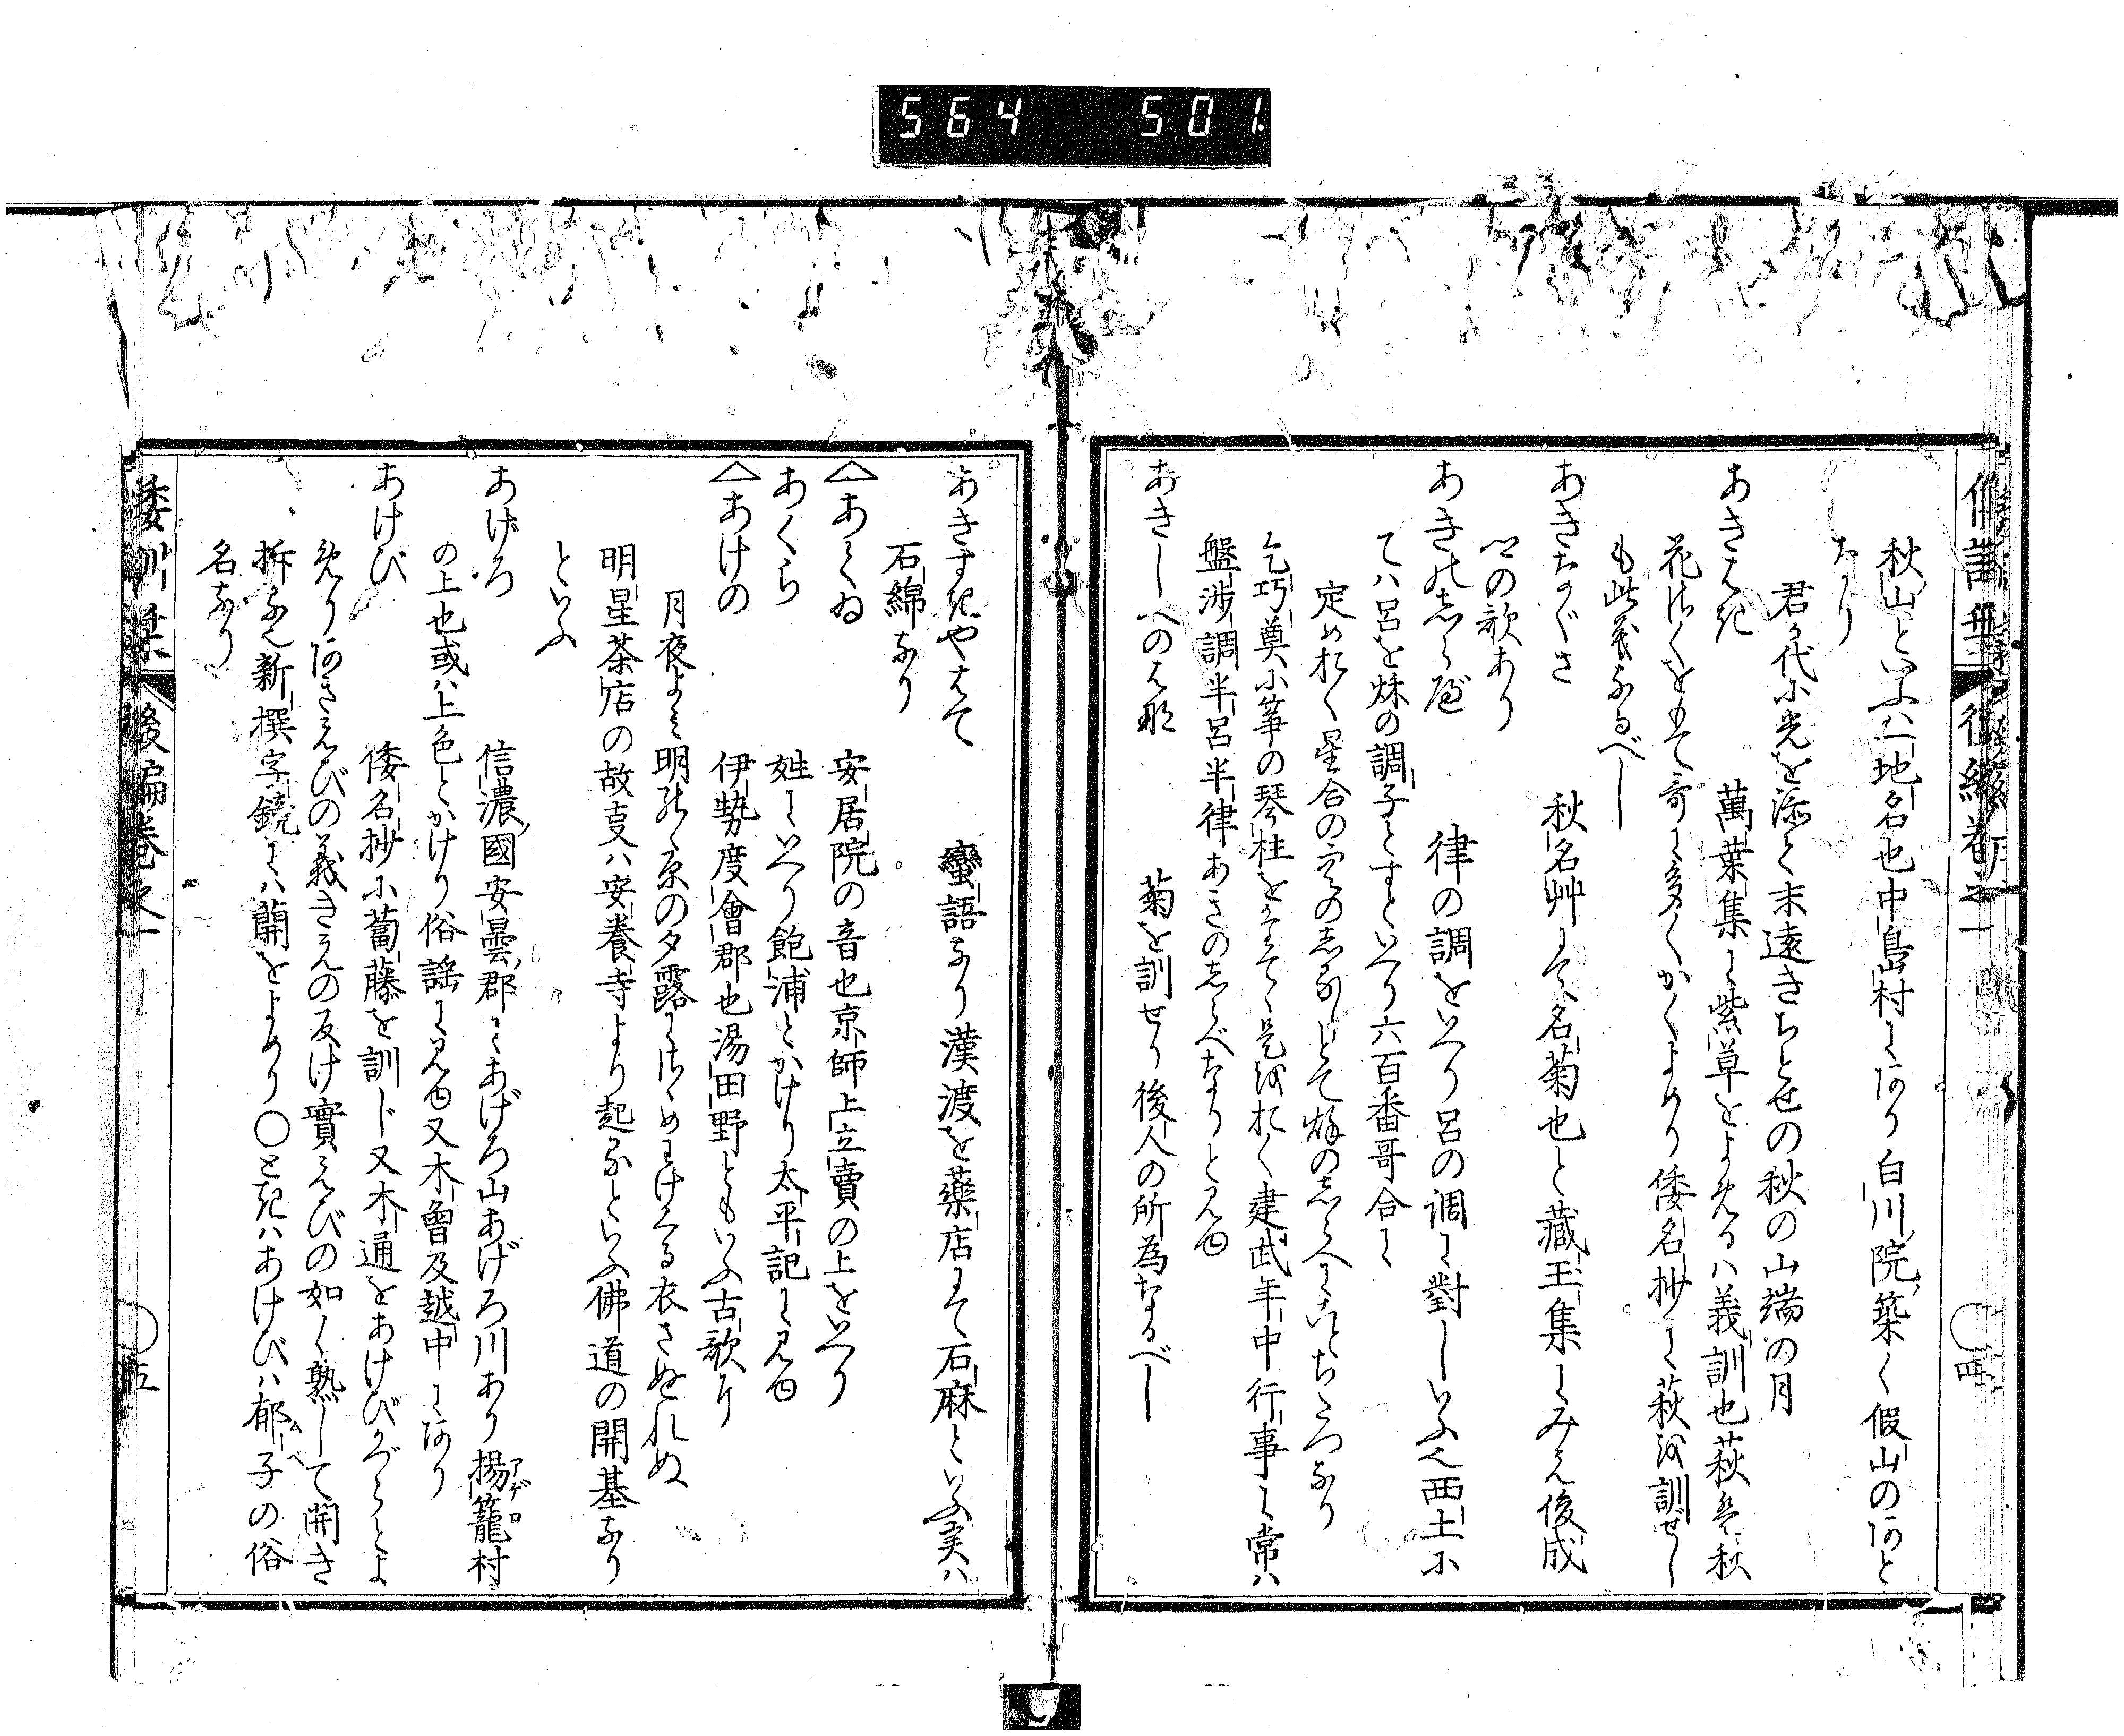 564 501
秋山といふハ地名也中島村にあり白川院築く假山のあと
なり
君が代に光を添て末遠きちとせの秋の山端の月
あきはぎ 萬葉集に紫草をよめるハ義訓也萩を秋
花咲くをもて哥に多くかくよめり倭名抄に萩を訓ぜし
も此義なるべし
あきちぐさ 秋名艸にて名菊也と藏玉集にみえ俊成
の歌あり
あきのしらべ 律の調をいへり呂の調に對しいふ也西土に
てハ呂を秌の調子とすといへり六百番哥合に
定めおく星合の空のしるしとて秌のしらべにことぢたつなり
乞巧奠に箏の琴柱をたてて是を おく建武年中行事に常ハ
盤渉調半呂半律あきのしらべなりと見ゆ
あきしへのはな 菊を訓せり後人の所為なるべし
倭訓栞 後編巻之一 ○四
あきすぎやはて 蠻語なり漢渡を藥店にて石麻といふ実ハ
石綿なり
△あぐゐ 安居院の音也京師上立賣の上をいへり
あくら 姓にいへり飽浦とかけり太平記に見ゆ
△あけの 伊勢度會郡也湯田野ともいふ古歌に
月夜よみ明野が原の夕露にさゝめわけくる衣さぬれぬ
明星茶店の故事ハ安養寺より起るといふ佛道の開基なり
といふ
あげろ 信濃國安曇郡にあげろ山あげろ川あり揚籠村
の上也或ハ上色とかけり俗謡に見ゆ又木曽及越中にあり
あけび 倭名抄に葍藤を訓じ又木通をあけびかづらとよ
めりあさえびの義きえの反け實えびの如く熟して開き
拆る也新撰字鏡にハ蘭をよめり○ときハあけびハ郁子の俗
名なり
倭訓栞 後編巻之一 ○五